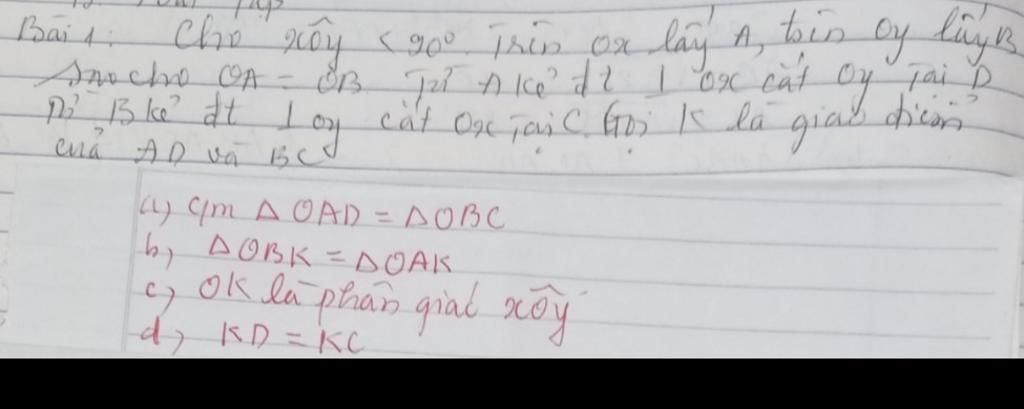 Bài 1: Cho xôy < 90° Trên ox lấy A, trên oy lấy B
Sao cho OA = OB Từ A kẻ đt ⊥ ox cắt oy tại D
Từ B kẻ đt ⊥ oy cắt ox tại C. Gọi K là giao điểm
của AD và BC
a, c/m Δ OAD = Δ OBC
b, Δ OBK = Δ OAK
c, OK là phân giác xôy
d, KD = KC